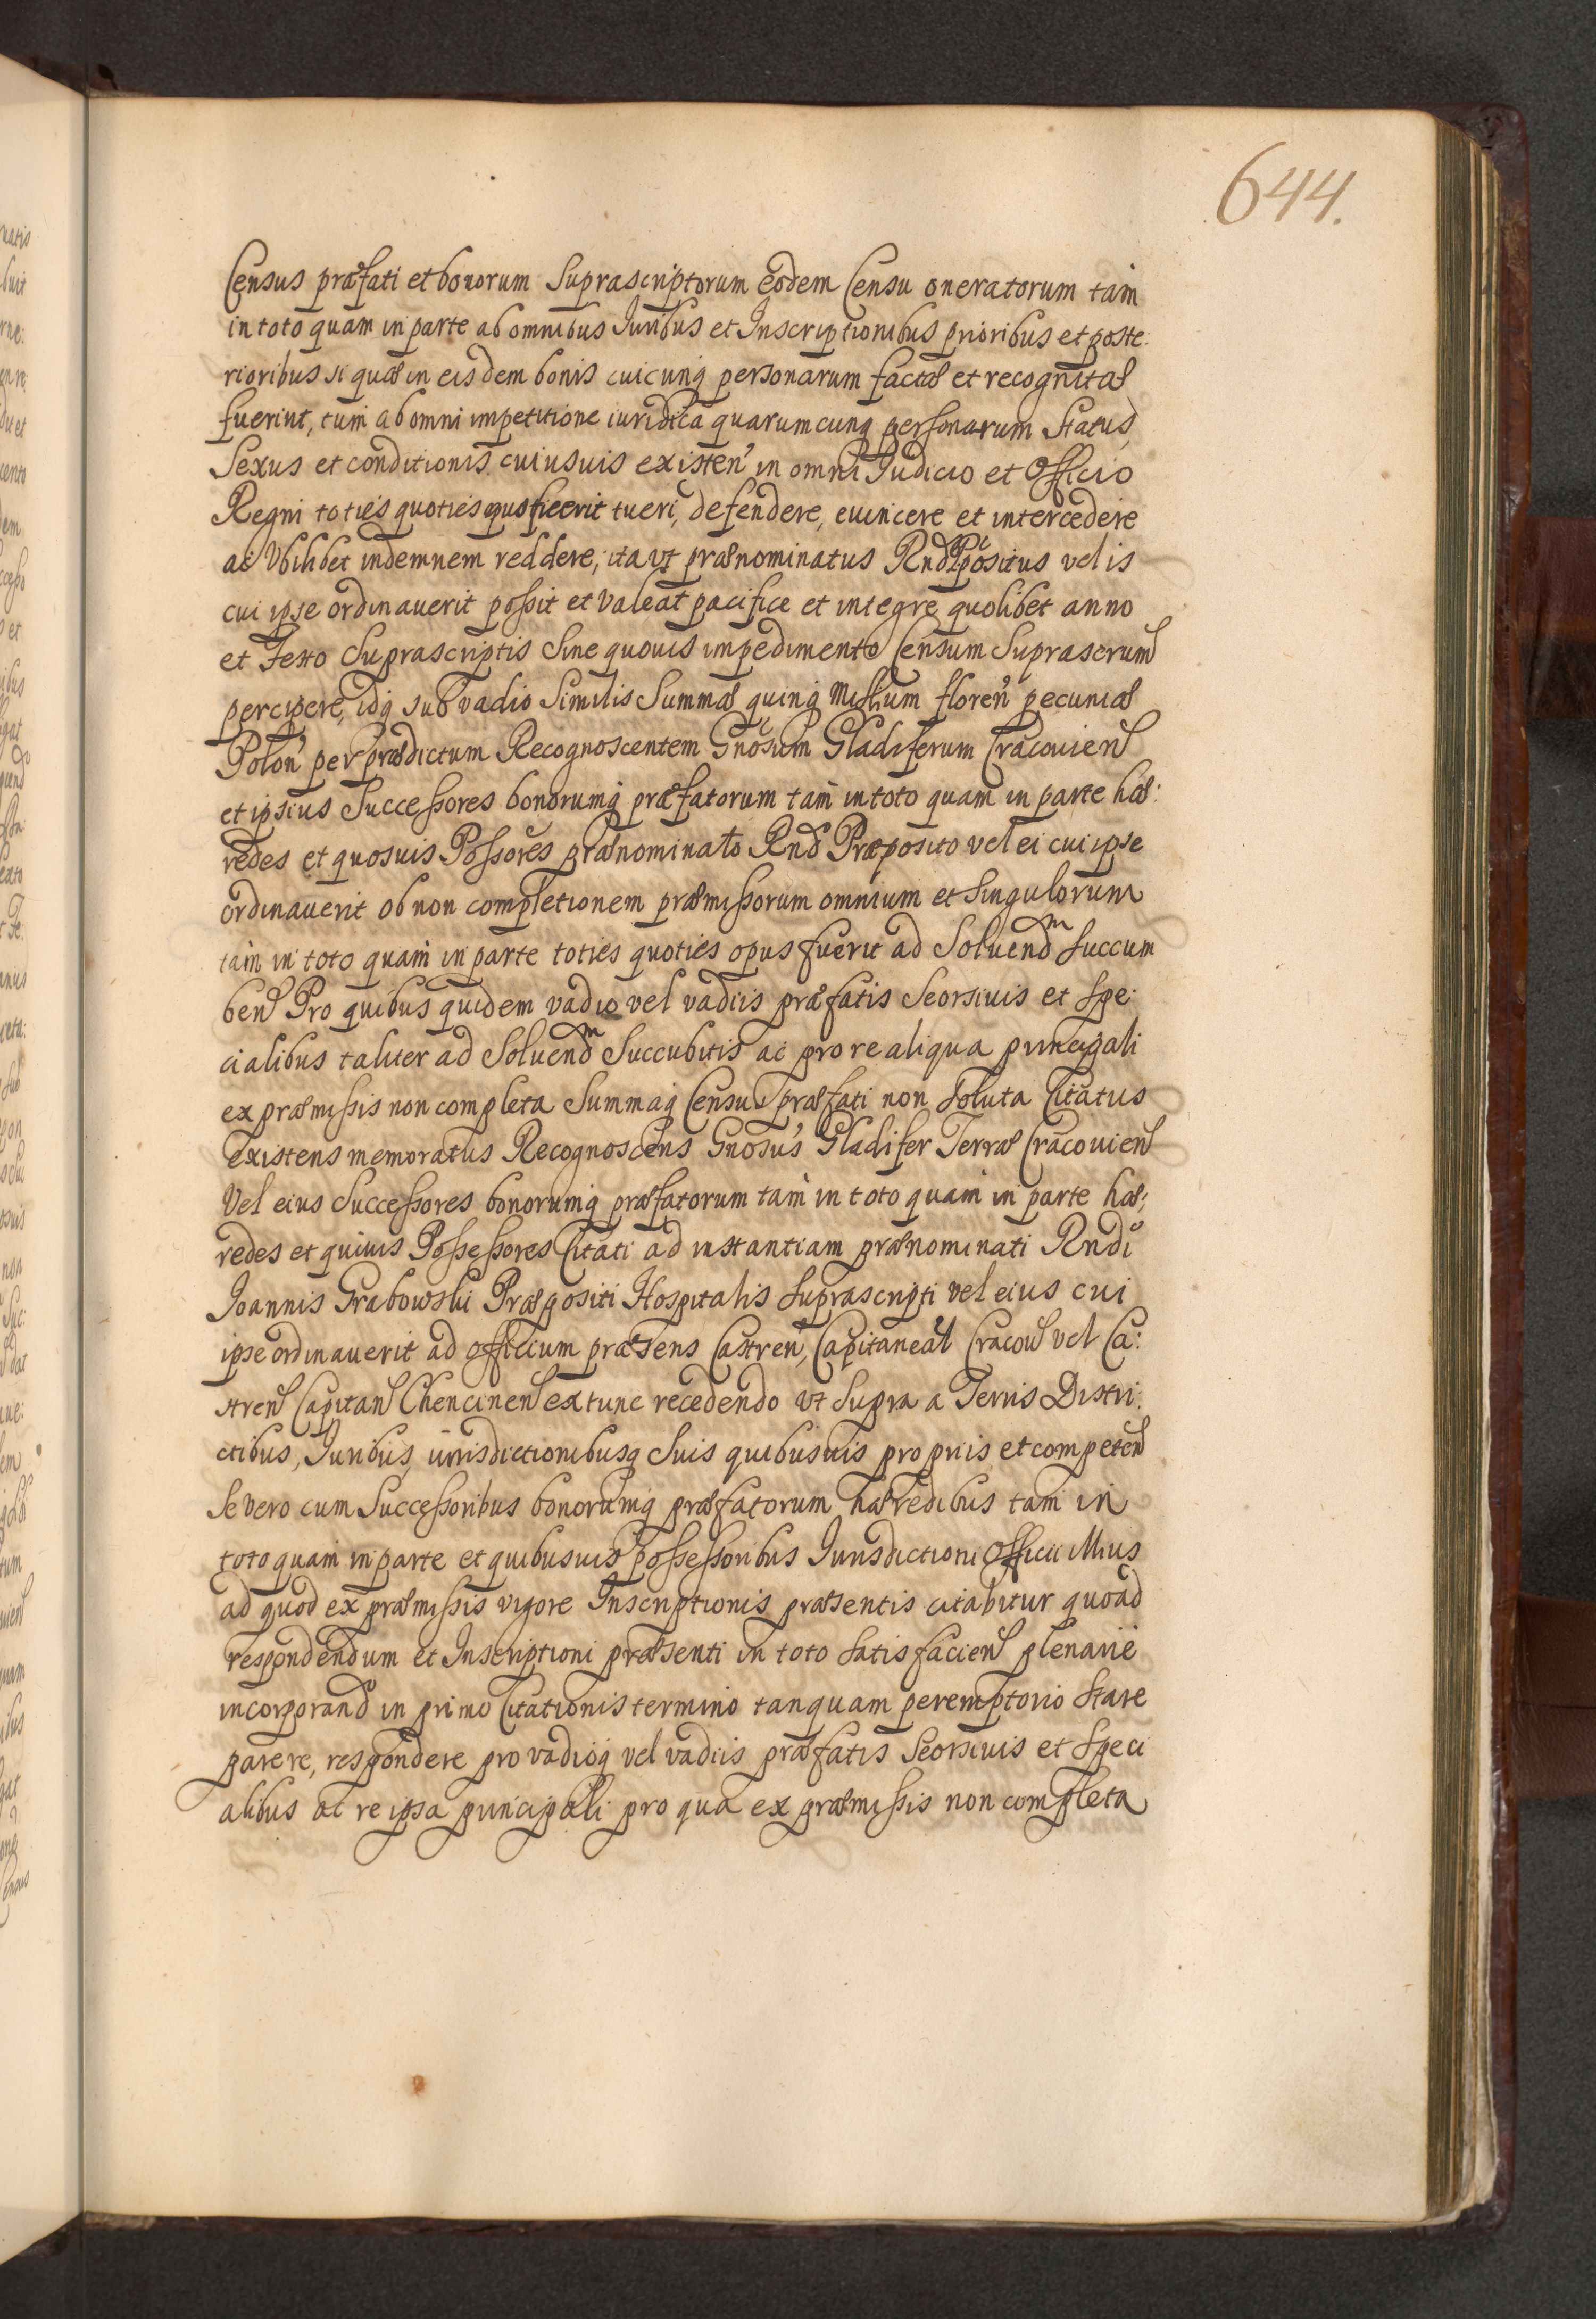 644.
Census præfati et bonorum Suprascriptorum eodem Censu oneratorum tam
in toto quam in parte ab omnibus Iuribus et Inscriptionibus prioribus et poste:
rioribus si quæ in eisdem bonis cuicunq personarum factæ et recognitæ
fuerint, tum ab omni impetitione iuridica quarumcunq personarum Status,
Sexus et conditionis cuiusuis existen' in omni Iudicio et Officio
Regni toties quoties opus fuerit tueri, defendere, euincere et intercedere
ac Vbilibet indemnem reddere, ita vt prænominatus Rnd Ppositus vel is
cui ipse ordinauerit possit et valeat pacifice et integre quolibet anno
et Festo Suprascriptis Sine quouis impedimento Censum Suprascrum
percipere, idq sub vadio Similis Summæ quinq Millium floren' pecuniæ
Polon' per prædictum Recognoscentem Gnosum Gladiferum Cracouien
et ipsius Successores bonorumq præfatorum tam in toto quam in parte hæ:
redes et quosuis Possores prænominato Rnd Præposito vel ei cui ipse
ordinauerit ob non completionem præmissorum omnium et Singulorum
tam in toto quam in parte toties quoties opus fuerit ad Soluendm Succum
ben Pro quibus quidem vadio vel vadiis præfatis Seorsiuis et Spe:
cialibus taliter ad Soluendm Succubitis ac pro re aliqua principali
ex præmissis non completa Summaq Census præfati non Soluta Citatus
existens memoratus Recognoscens Gnosus Gladifer Terræ Cracouien
Vel eius Successores bonorumq præfatorum tam in toto quam in parte hæ:
redes et quiuis Possessores Citati ad instantiam prænominati Rndi
Ioannis Grabowski Præpositi Hospitalis Suprascripti vel eius cui
ipse ordinauerit ad officium præsens Castren, Capitaneal Cracou vel Ca:
stren Capitan Chencinen extunc recedendo vt Supra a Terris Distri:
ctibus, Iuribus, iurisdictionibusq Suis quibusuis propriis et competen
Se vero cum Successoribus bonorumq præfatorum hæredibus tam in
toto quam in parte et quibusuis possessoribus Iurisdictioni Officii illius
ad quod ex præmissis vigore Inscriptionis præsentis citabitur quoad
respondendum et Inscriptioni præsenti in toto Satisfacien plenarie
incorporand in primo Citationis termino tanquam peremptorio Stare
parere, respondere pro vadioq vel vadiis præfatis Seorsiuis et Speci
alibus ac re ipsa principali pro qua ex præmissis non completa